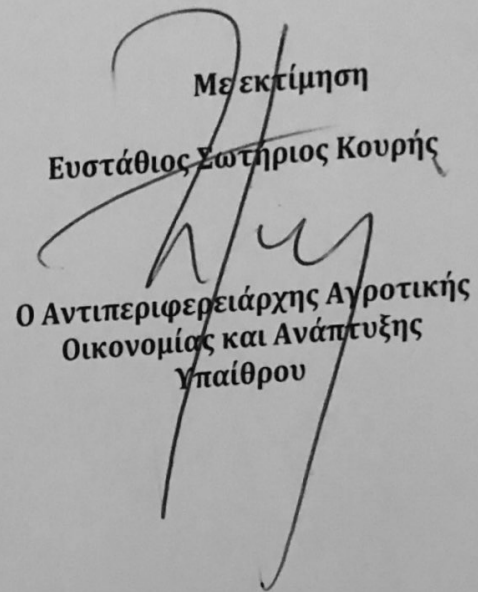 Με εκτίμηση
Ευστάθιος Σωτήριος Κουρής
Ο Αντιπεριφερειάρχης Αγροτικής
Οικονομίας και Ανάπτυξης
Υπαίθρου